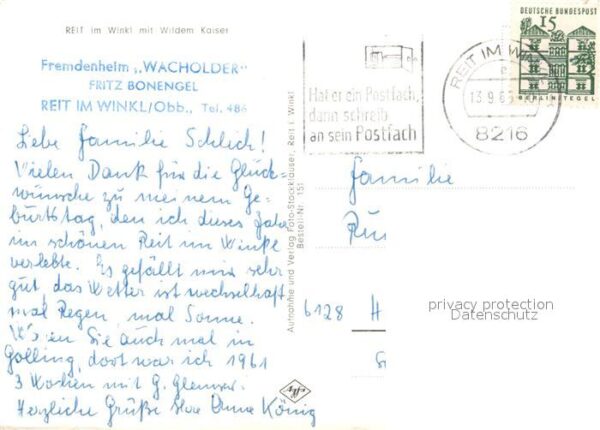 REIT im Winkl mit Wildem Kaiser
Fremdenheim „WACHOLDER"
FRITZ BONENGEL
REIT IM WINKL/Obb., Tel. 486
Liebe Familie Schlich!
Vielen Dank für die Glück-
wünsche zu meinem Ge-
burtstag, den ich dieses Jahr
im schönen Reit im Winkl
verlebte. Es gefällt mir sehr
gut das Wetter ist wechselhaft
mal Regen, mal Sonne.
Sie auch mal in
Golling, dort war ich 1961
3 Wochen mit G.
Herzliche Grüße Ihre Anna König
Aufnahme und Verlag Foto-Stockklauser, Reit i. Winkl
Bestell-Nr. 151
Agfa
Hat er ein Postfach,
dann schreib
an sein Postfach
REIT IM WINKL
e
13.9.65
8216
DEUTSCHE BUNDESPOST
15
BERLIN-TEGEL
Familie
6128 H
privacy protection
Datenschutz